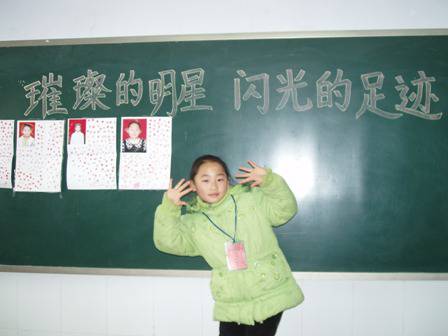 璀璨的明星 闪光的足迹